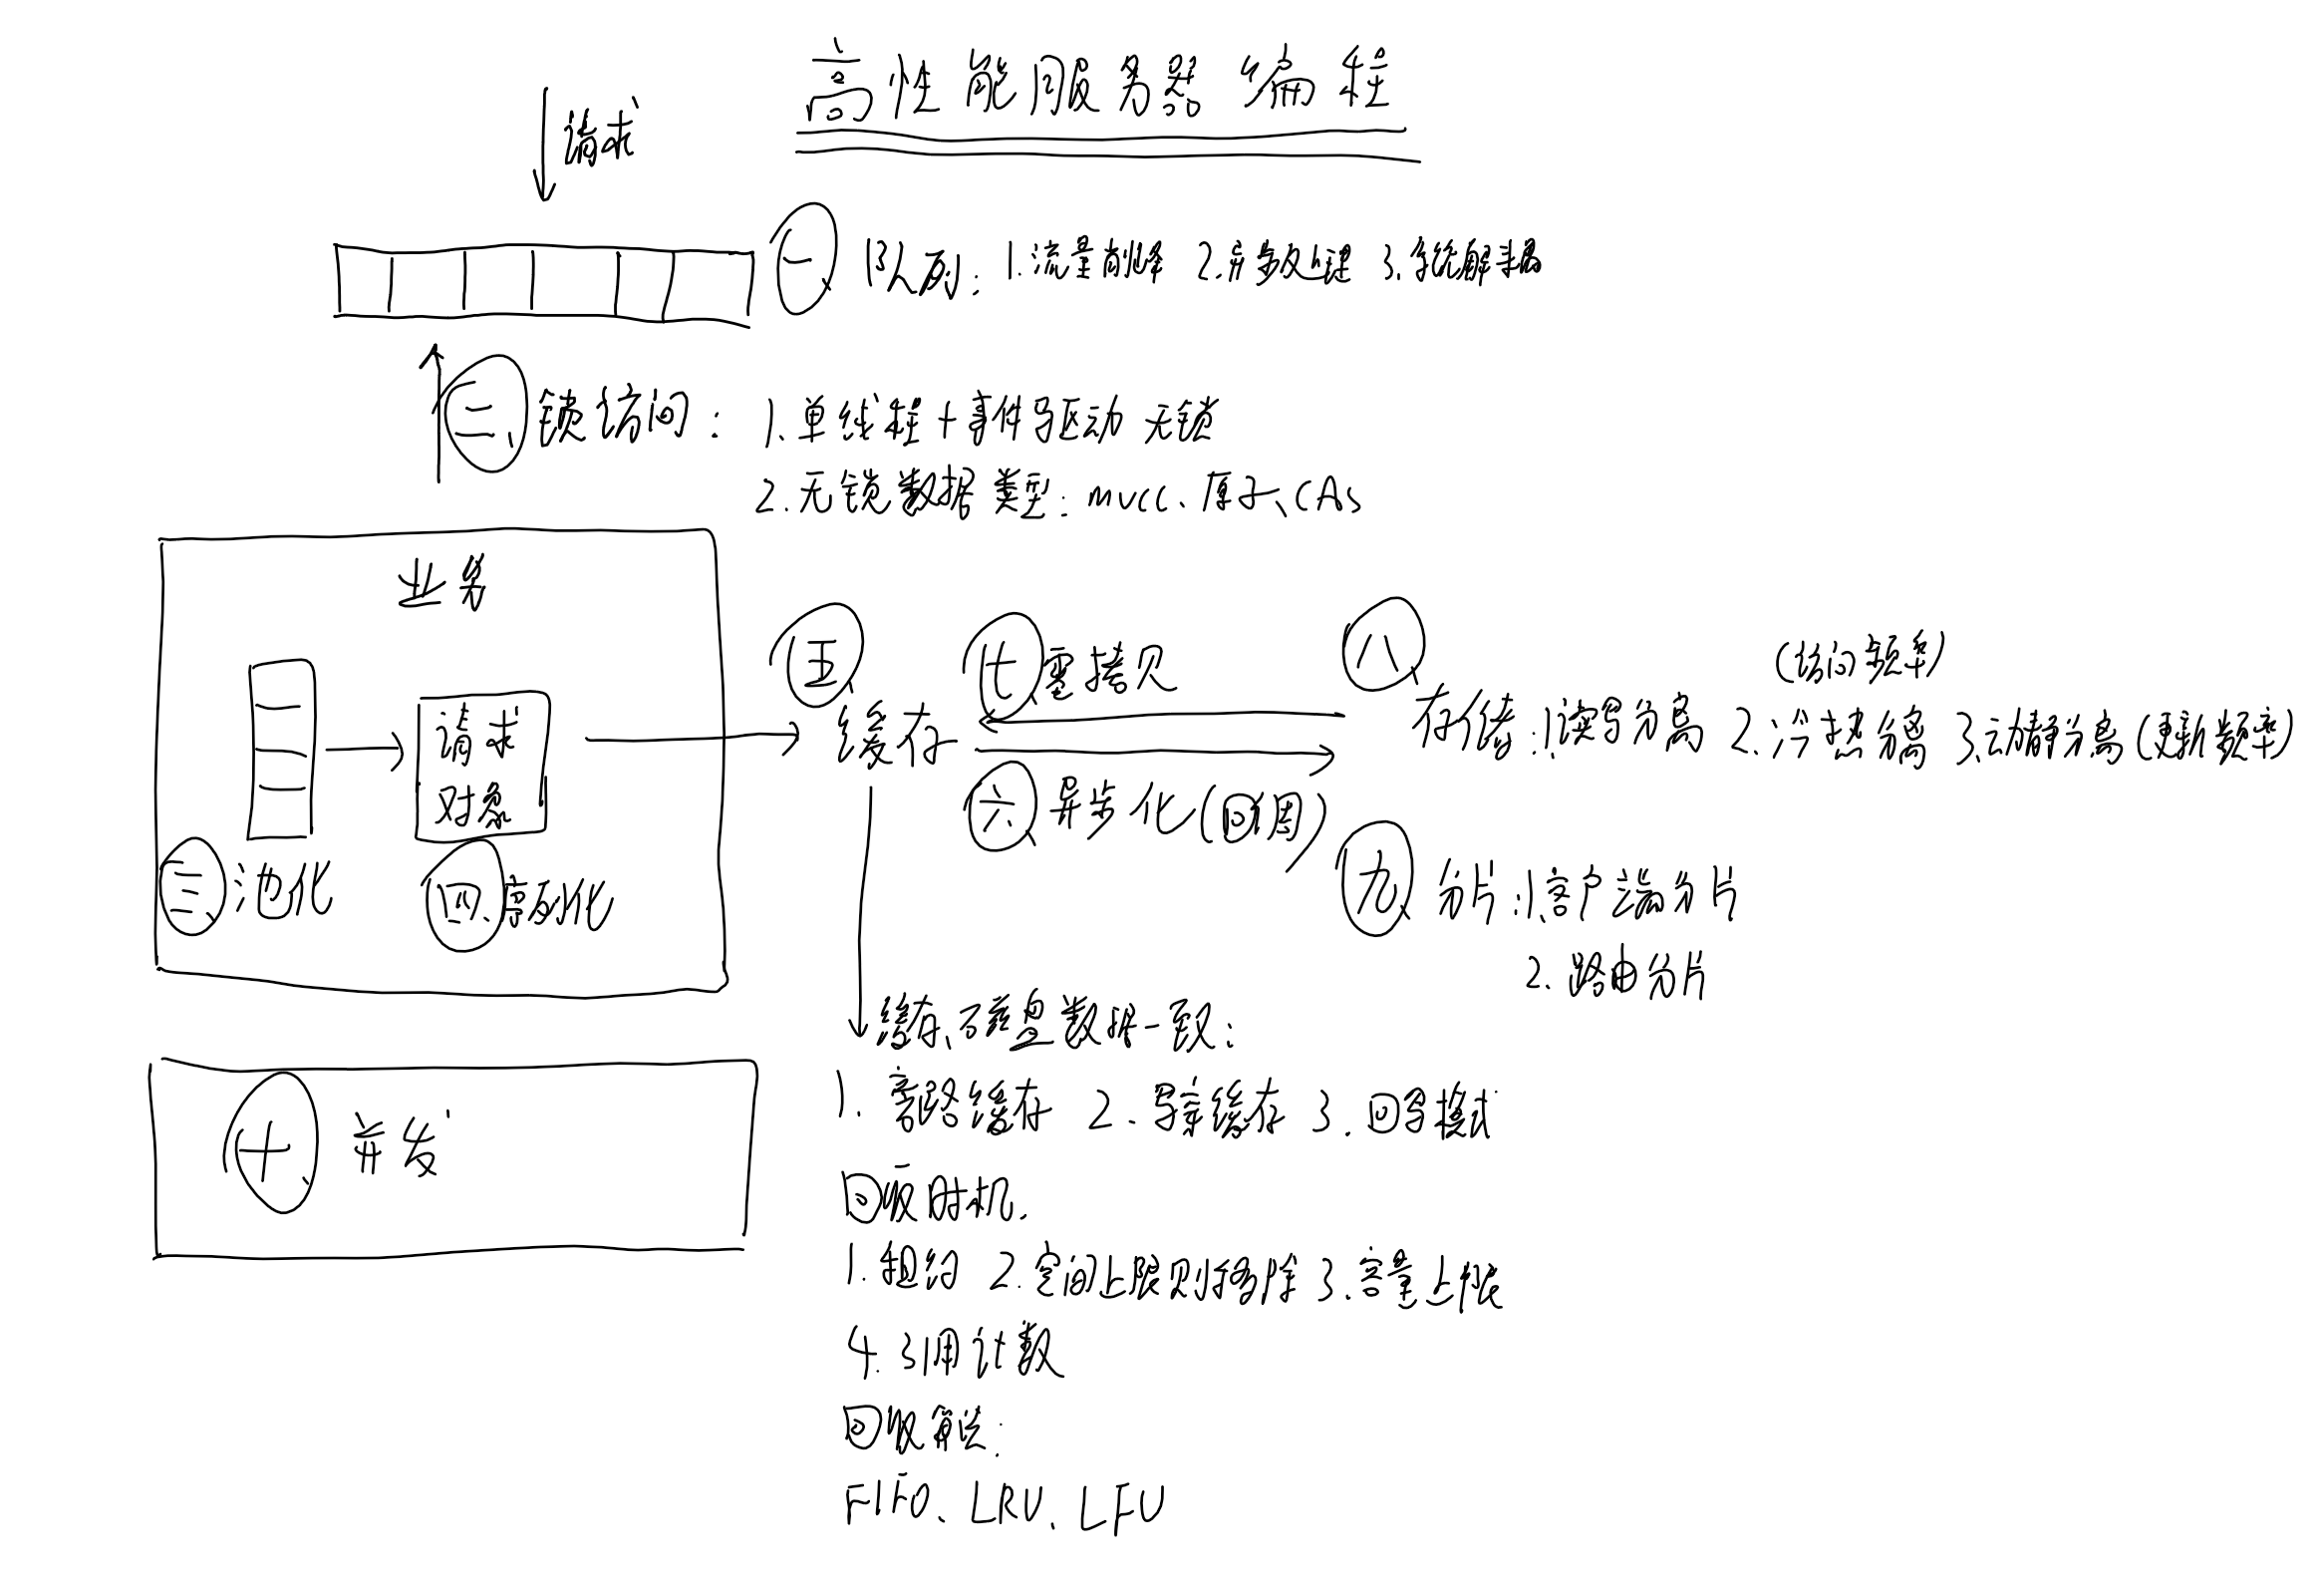 高性能服务器编程
请求
一、队列：1.流量削峰 2.异步处理 3.系统解耦
二、锁访问：1.单线程+事件驱动 无锁
2.无锁数据类型：MVCC、原子、CAS
业务
请求
对象
三、池化
四、序列化
五、
缓存
七、零拷贝
六、异步化(回调)
八、
(访问频率)
存储：1.读写分离 2.冷热分离 3.动静分离(更新频率)
九、分片：1.客户端分片
2.路由分片
缓存、磁盘数据一致：
1.旁路缓存 2.写穿缓存 3.回写模式
回收时机.
1.租约 2.空间上限则移除 3.容量上限
4.引用计数
回收算法：
FIFO、LRU、LFU
十、并发